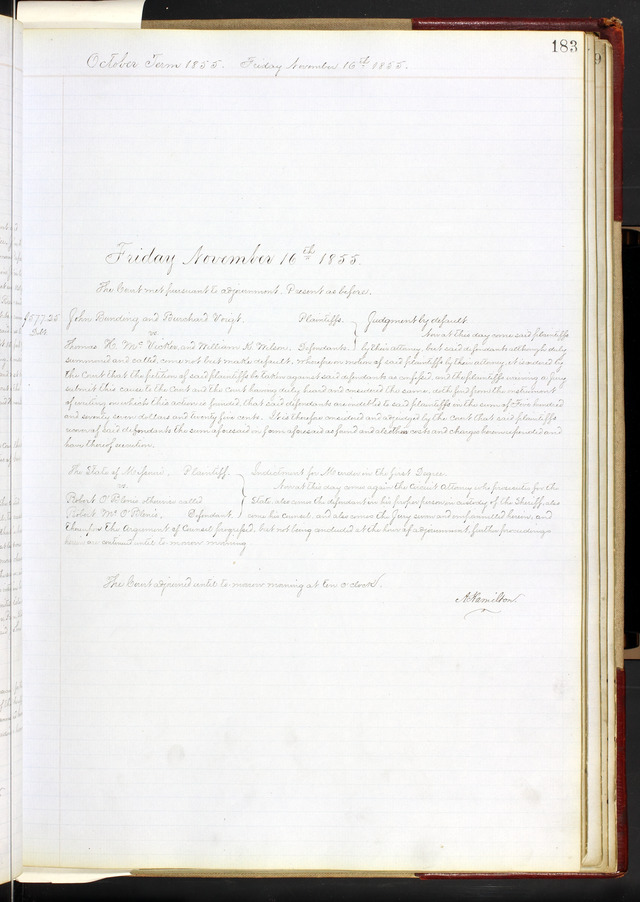 183
October Term 1855. Friday November 16th 1855.
Friday November 16th 1855.
The Court met pursuant to adjournment. Present as before.
$577.25 John Bunding and Burchard Voigt. Plaintiffs. Judgment by default.
vs. Now at this day come said plaintiffs
Thomas H. and William H. Nelson, Defendants. by their attorney, but said defendants although duly
summoned and called, come not but make default. whereupon on motion of said plaintiffs by their attorney, it is ordered by
the Court that the petition of said plaintiffs be taken against said defendants as confessed. and the plaintiffs waiving a jury
submit this cause to the Court and the Court having duly heard and considered the same, doth find from the instrument
of writing on which this action is founded, that said defendants are indebted to said plaintiffs in the sum of Five hundred
and seventy seven dollars and twenty five cents. It is therefore considered and adjudged by the Court that said plaintiffs
recover of said defendants the sum aforesaid in form aforesaid as found and also their costs and charges herein expended and
have thereof execution.
The State of Missouri. Plaintiff. Indictment for Murder in the first Degree.
vs. Now at this day come again the Circuit Attorney who prosecutes for the
Robert O'Blenis otherwise called State. also comes the defendant in his proper person in custody of the Sheriff. also
Robert Mc O'Blenis. Defendant. come his counsel. and also comes the Jury sworn and empannelled herein, and
thereupon the Argument of Counsel progressed, but not being concluded at the hour of adjournment, further proceedings
herein are continued until to-morrow morning
The Court adjourned until to-morrow morning at ten o'clock.
A. Hamilton